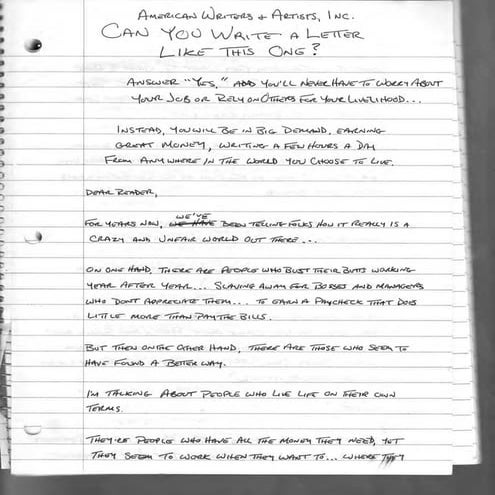 AMERICAN WRITERS & ARTISTS, INC.
CAN YOU WRITE A LETTER
LIKE THIS ONE?
ANSWER "YES," AND YOU'LL NEVER HAVE TO WORRY ABOUT
YOUR JOB OR RELY ON OTHERS FOR YOUR LIVELIHOOD...
INSTEAD, YOU WILL BE IN BIG DEMAND, EARNING
GREAT MONEY, WRITING A FEW HOURS A DAY
FROM ANYWHERE IN THE WORLD YOU CHOOSE TO LIVE.
DEAR READER,
WE'VE
FOR YEARS NOW, WE HAVE BEEN TELLING FOLKS HOW IT REALLY IS A
CRAZY AND UNFAIR WORLD OUT THERE...
ON ONE HAND, THERE ARE PEOPLE WHO BUST THEIR BUTTS WORKING
YEAR AFTER YEAR... SLAVING AWAY FOR BOSSES AND MANAGERS
WHO DON'T APPRECIATE THEM... TO EARN A PAYCHECK THAT DOES
LITTLE MORE THAN PAY THE BILLS.
BUT THEN ON THE OTHER HAND, THERE ARE THOSE WHO SEEM TO
HAVE FOUND A BETTER WAY.
I'M TALKING ABOUT PEOPLE WHO LIVE LIFE ON THEIR OWN
TERMS.
THEY'RE PEOPLE WHO HAVE ALL THE MONEY THEY NEED, YET
THEY SEEM TO WORK WHEN THEY WANT TO... WHERE THEY